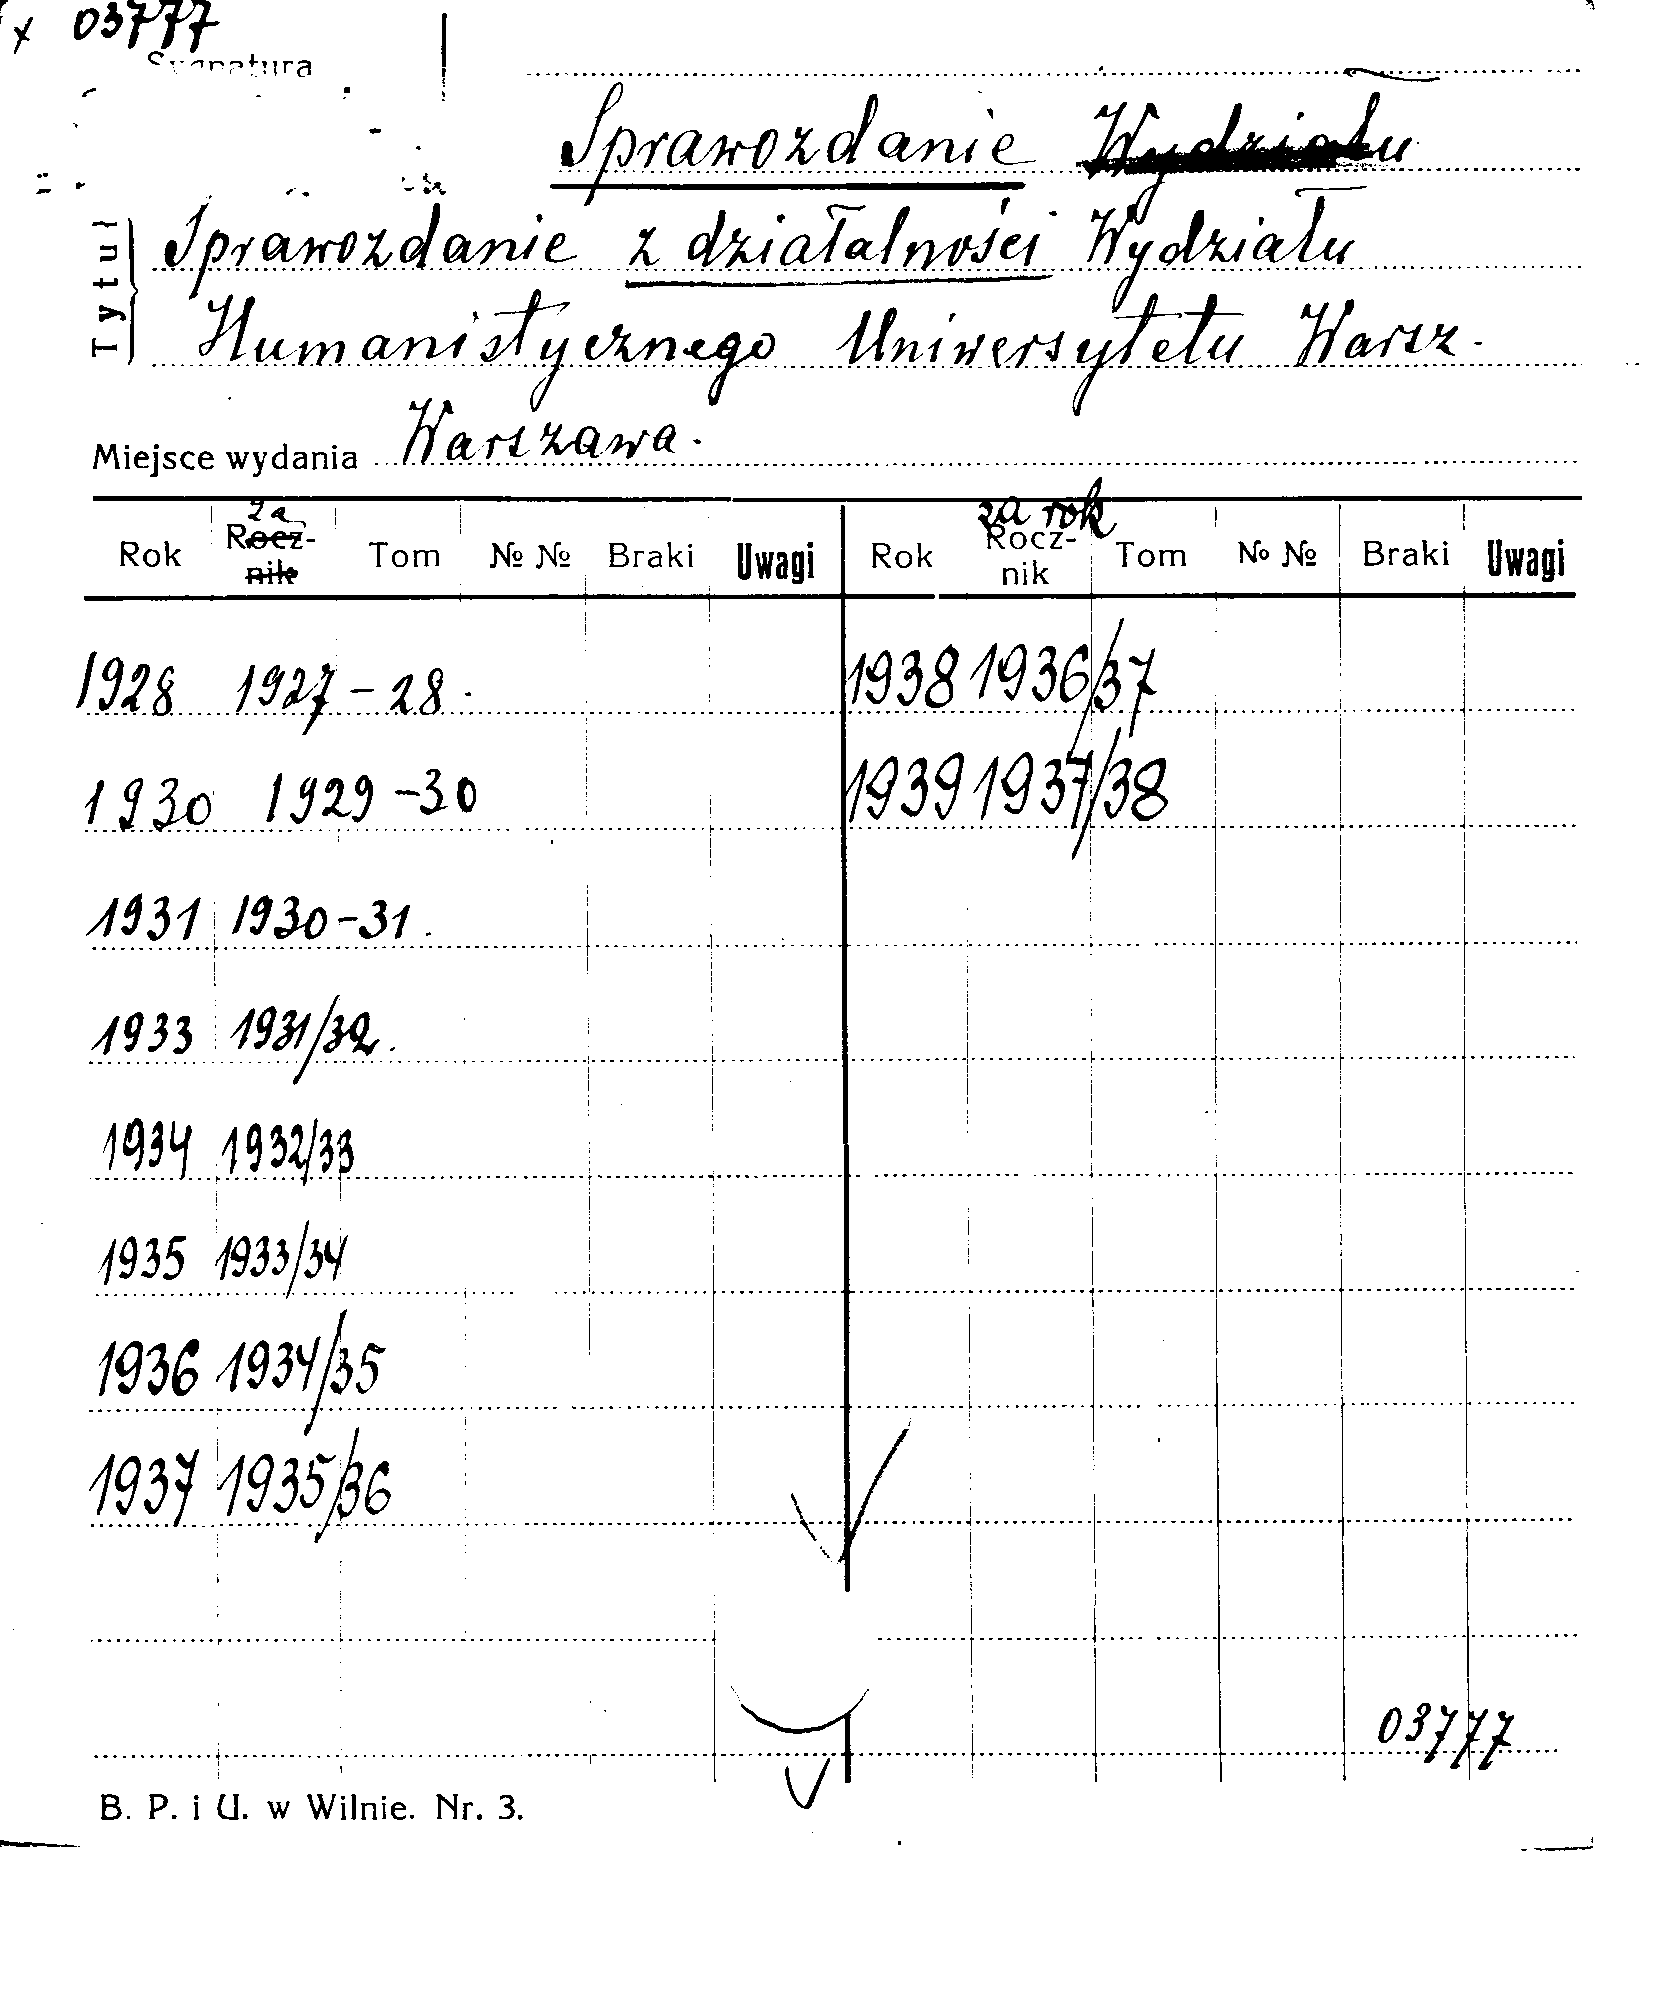 x 03777
Sygnatura
Sprawozdanie Wydziału
Tytuł
Sprawozdanie z działalności Wydziału
Humanistycznego Uniwersytetu Warsz.
Miejsce wydania Warszawa.
za za rok
Rok Rocz-nik Tom № № Braki Uwagi Rok Rocz-nik Tom № № Braki Uwagi
1928 1927-28. 1938 1936/37
1930 1929-30 1939 1937/38
1931 1930-31.
1933 1931/32.
1934 1932/33
1935 1933/34
1936 1934/35
1937 1935/36
03777
B. P. i U. w Wilnie. Nr. 3.